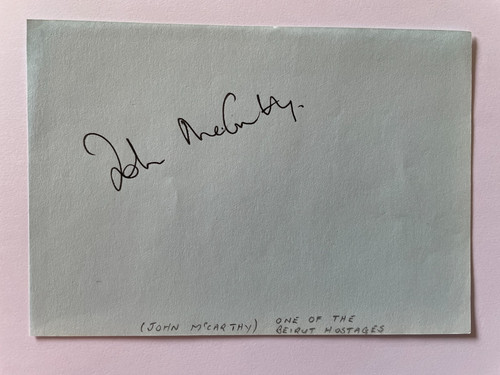 John McCarthy.
(JOHN McCARTHY) ONE OF THE
BEIRUT HOSTAGES